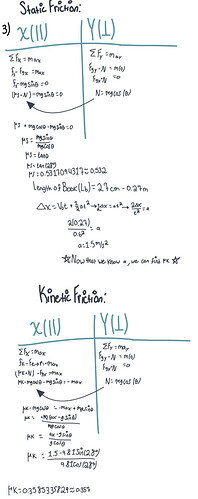 Static Friction:
3) X(||) Y(⊥)
ΣFx = max
Ff - Fgx = max
Ff - mgsinθ = 0
(μs·N) - mgsinθ = 0
ΣFy = may
Fgy - N = m(0)
Fgy - N = 0
N = mgcos(θ)
μs * mgcosθ - mgsinθ = 0
μs = mgsinθ/mgcosθ
μs = tanθ
μs = tan(28°)
μs = 0.5317094317 ≈ 0.532
length of Book (Lb) = 27cm → 0.27m
Δx = Vot + ½at² → 2Δx = at² → 2Δx/t² = a
2(0.27)/0.6² = a
a = 1.5 m/s²
☆ Now that we know a, we can find μk ☆
Kinetic Friction:
X(||) Y(⊥)
ΣFx = max
(μk·N) - Fgx = max
μk·mgcosθ - mgsinθ = -max
ΣFy = may
Fgy - N = m(0)
Fgy - N = 0
N = mgcos(θ)
μk·mgcosθ = -max + mgsinθ
μk =
μk =
μk = 1.5 - 9.81sin(28°)/9.81cos(28°)
μk = 0.3585335824 ≈ 0.359